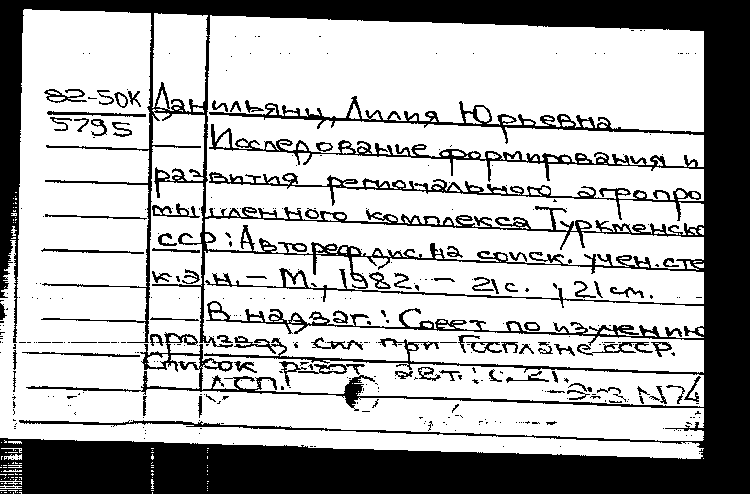 82-50К
5795
Данильянц, Лилия Юрьевна.
Исследование формирования и
развития регионального агропро
мышленного комплекса Туркменско
ССР: Автореф. дис. на соиск. учен. сте
к.э.н. - М., 1982. - 21 с. ; 21 см.
В надзаг.: Совет по изучению
производ. сил при Госплане СССР.
Список работ авт.: с. 21.
ДСП.!
Экз N74